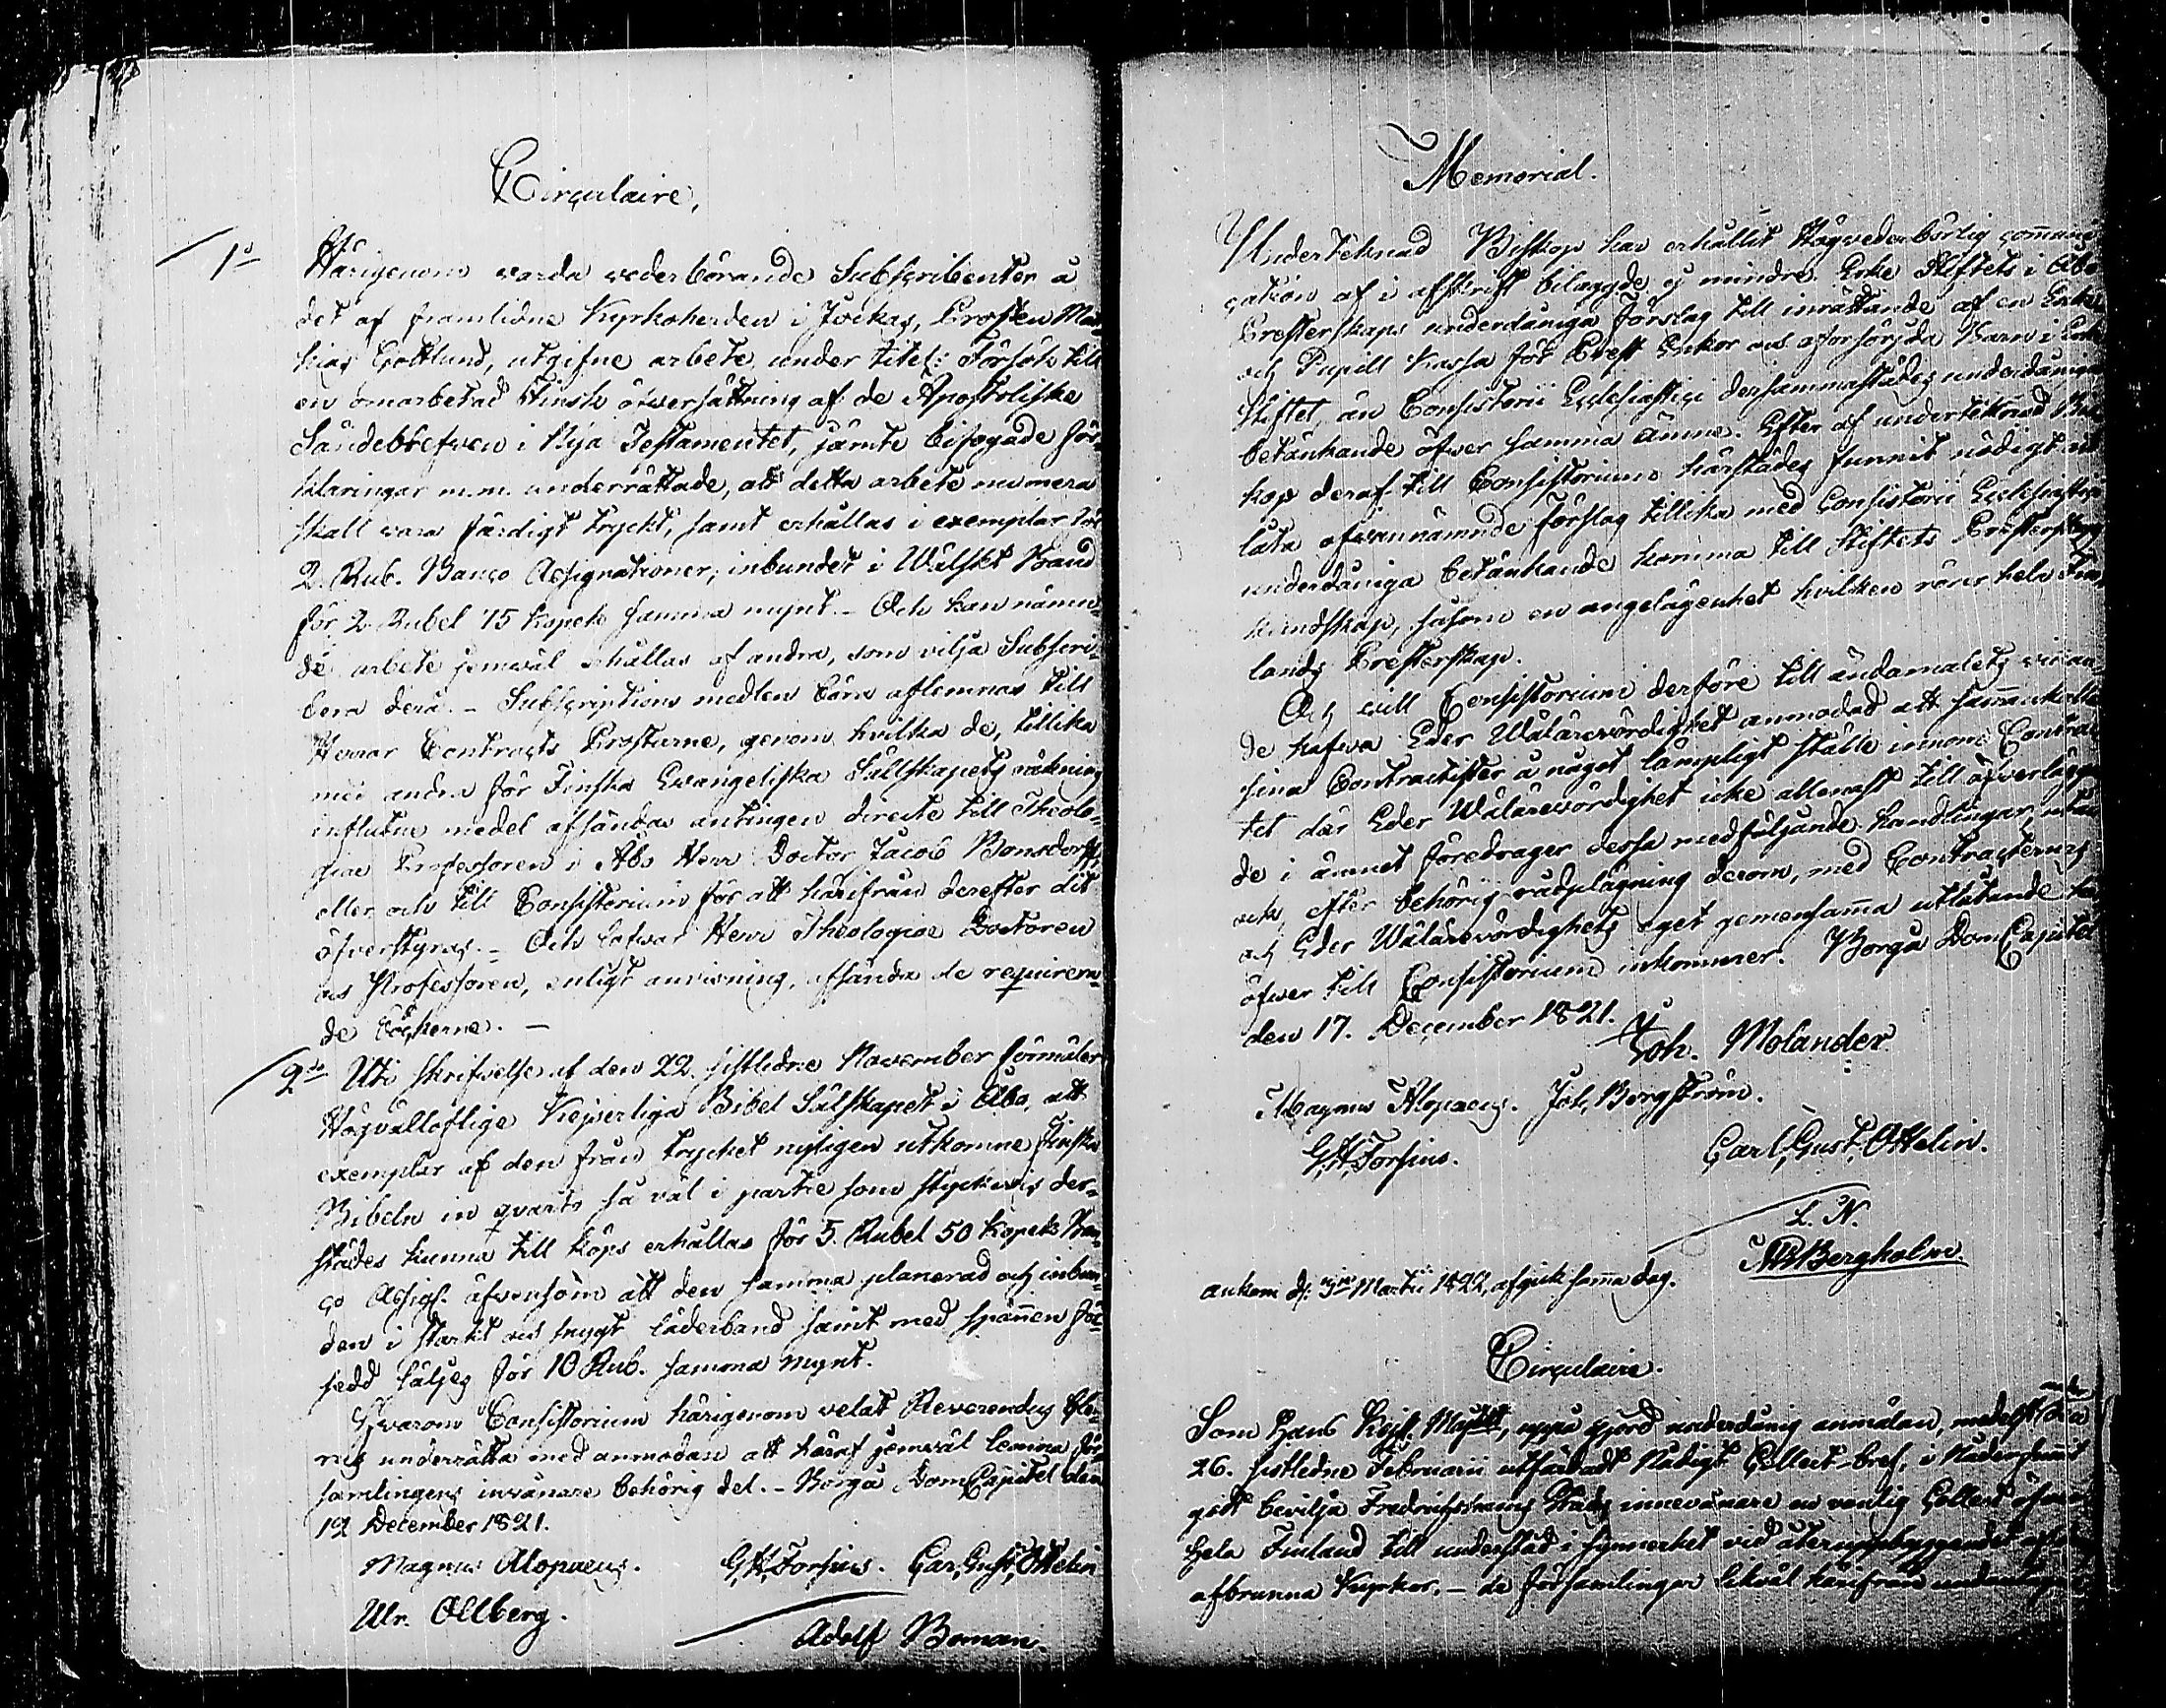 Circulaire,
1o Härigenom warda wederbörande Subscribenter å
det af framlidne Kyrkoherden i Jockas, Prosten Mat-
hias Gottlund, utgifne arbete, under titel: Försök till
en omarbetad Finsk öfwersättning af de Apostoliske
Sändebrefwen i Nya Testamentet, jämte bifogade för-
klaringar m.m. underrättade, att detta arbete numera
skall wara färdigt tryckt, samt erhållas i exemplar för
2. Rub. Banco Assignationer, inbundet i Wälskt Band
för 2 Rubel 75 Kopek samma mynt. – Och kan nämn-
de arbete jemwäl erhållas af andra, som wilja Subscri-
bera derå. – Subscriptions medlen böra aflemnas till
Herrar Contracts Prostarne, genom hvilka de, tillika
med andra för Finska Evangeliska Sällskapets räkning
influtne medel afsändas antingen directe till Theolo-
giae Professoren i Åbo Herr Doctor Jacob Bonsdorff,
eller och till Consistorium för att härifrån derefter dit
öfverstyras. – Och lofwar Herr Theologiae Doctoren
och Professoren, enligt anwisning, afsända de requireran-
de böckerne. –
2do Uti skrifwelse af den 22. sistledne November förmäler
Högvällofliga Kejserliga Bibel Sälskapet i Åbo, att
exemplar af den från trycket nyligen utkomne Finska
Bibeln in qvarto så väl i partie som styckevis der-
städes kunna till köps erhållas för 5. Rubel 50 Kopek Ban-
co Assign. äfwensom att den samma planerad och inbun-
den i starkt och snyggt läderband samt med spännen för-
sedd säljes för 10 Rub. samma mynt.
Hvarom Consistorium härigenom velat Reverendus Cle-
rus underrätta med anmodan att häraf jemwäl lemna för-
samlingens inwånare behörig del. – Borgå DomCapitel den
12 December 1821.
Magnus Alopaeus. G.H. Forsius. Carl, Gust, Ottelin
Ulr. Ollberg.
Adolf Boman.
Memorial.
Undertecknad Biskop har erhållit Högvederbörlig communi-
cation af i afskrift bilaggde ej mindre Erke Stiftets i Åbo
Presterskaps underdåniga förslag till inrättande af en Enke
och Pupill Kassa för Prest Enkor och oförsörjda Barn i Erke
Stiftet, än Consistorii Ecclesiastici dersammastädes underdåniga
betänkande öfwer samma ämne. Efter af undertecknad Bis-
kop deraf till Consistorium härstädes funnit nödigt att
låta ofwannämnde förslag tillika med Consistorii Ecclesiastici
underdåniga betänkande komma till Stiftets Presterskaps
kundskap, såsom en angelägenhet hvilken rörer hela Fin-
lands Presterskap.
Och will Consistorium derföre till ändamålets winnan-
de hafwa Eder Wälärewördighet anmodad att sammankalla
sina Contractister å något lämpligt ställe innom Contrac-
tet der Eder Wälärewördighet icke allenast till öfverläggan-
de i ämnet föredrager dessa medföljande handlingar, utan
och, efter behörig rådplägning derom, med Contracternes
och Eder Wälärewördighets eget gemensamma utlåtande här-
öfwer till Consistorium inkommer. Borgå DomCapitel
den 17. December 1821.
Joh. Molander
Magnus Alopaeus. Joh, Bergström.
G,H,Forsius. Carl, Gust, Ottelin.
L. N.
Bergholm.
ankom d. 3die Martii 1822, afgick samma dag.
Circulaire.
Som Hans Kejs. Majtt, uppå gjord underdånig anmälan, medelst under den
26. sistledne Februarii utfärdadt Nådigt Collect-bref, i Nåder funnit
godt bevilja Fredrichshamns Stads innevånare en vanlig Collect öfwer
hela Finland till understöd i synnerhet vid återuppbyggandet af dess
afbrunna Kyrkor, – de församlingar likväl härifrån undantagne